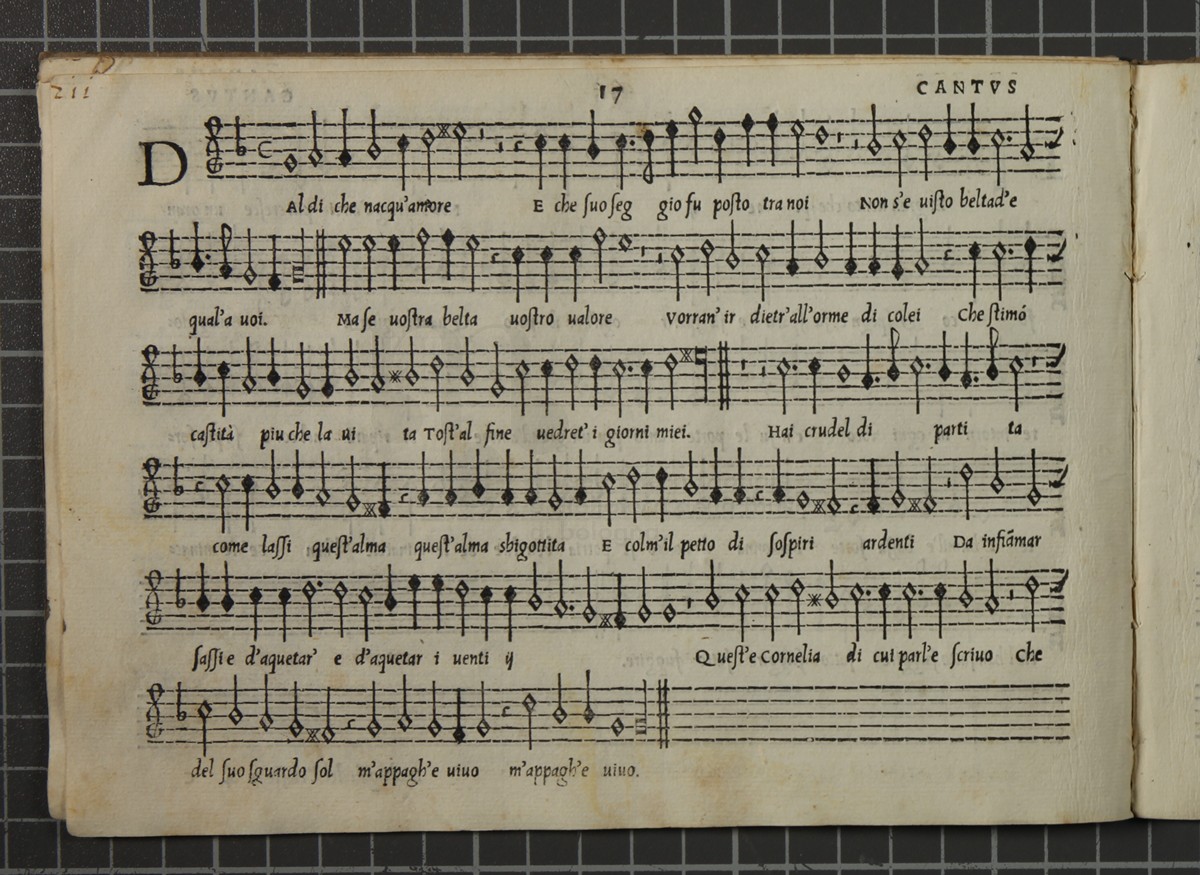 211
17
CANTVS
D
Al di che nacqu'amore E che ſuo ſeg gio fu poſto tra noi Non s'e uiſto beltad'e
qual'a uoi. Ma ſe uoſtra belta uoſtro ualore Vorran' ir dietr'all'orme di colei Che ſtimó
caſtità piu che la ui ta Toſt'al fine uedret' i giorni miei. Hai crudel di parti ta
come laſſi queſt'alma queſt'alma sbigottita E colm'il petto di ſoſpiri ardenti Da infiãmar
ſaſſi e d'aquetar' e d'aquetar i uenti ij Queſt'e Cornelia di cui parl'e ſcriuo Che
del ſuo ſguardo ſol m'appagh'e uiuo m'appagh'e uiuo.